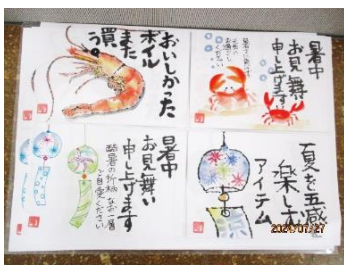 おいしかった
ボイル
また
買う。
暑中
お見舞
申し上げます
暑中
お見舞い
申し上げます
酷暑の折柄なお一層
ご自愛ください
夏を五感
楽しむ
アイテム
2024/07/27